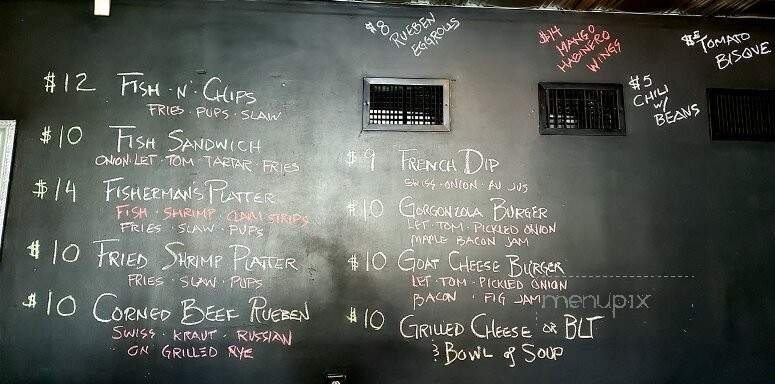 $12 FISH · N' CHIPS
FRIES · PUPS · SLAW
$10 FISH SANDWICH
ONION · LET · TOM · TARTAR · FRIES
$14 FISHERMANS PLATTER
FISH · SHRIMP · CLAM STRIPS
FRIES · SLAW · PUPS
$10 FRIED SHRIMP PLATTER
FRIES · SLAW · PUPS
$10 CORNED BEEF RUEBEN
SWISS · KRAUT · RUSSIAN
ON GRILLED RYE
$8 RUEBEN
EGGROLLS
$14 MANGO
HABINERO
WINGS
TOMATO
BISQUE
$5
CHILI
W/
BEANS
$9 FRENCH DIP
SWISS · ONION · AU JUS
$10 GORGONZOLA BURGER
LET · TOM · PICKLED ONION
MAPLE BACON JAM
$10 GOAT CHEESE BURGER
LET · TOM · PICKLED ONION
BACON · FIG JAM
$10 GRILLED CHEESE OR BLT
& BOWL of SOUP
menupix